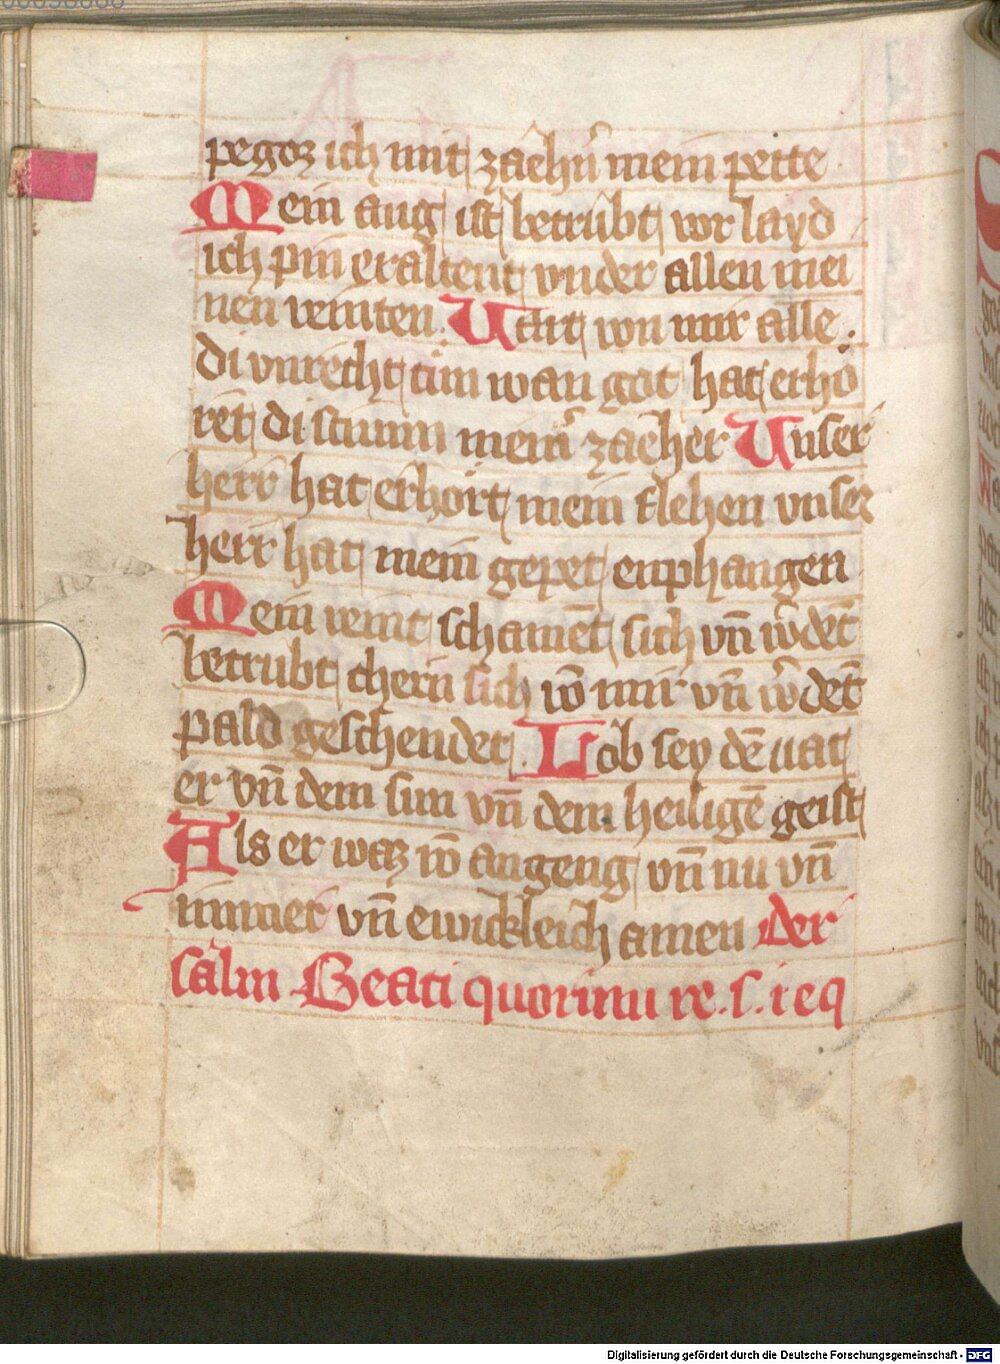 pegoz ich mit zaehn̄ mein pette
Mein aug ist betrubt vor layd
ich pin eraltent vnder allen mei
nen veinten. Vart von mir alle
di vnrecht tun wan got hat erho
ret di stimm meiner zaeher Vnser
herr hat erhort mein flehen vnser
herr hat mein gepet enphangen
Mein veint schamēt sich vn̄ wͦdēt
betrubt chern sich vō mir vn̄ wͦdēt
pald geschendet. Lob sey dē uat
er vn̄ dem sun vn̄ dem heiligē geist
Als er waz vō angeng vn̄ nu vn̄
immer vn̄ ewickleich amen der
salm Beati quorum re. s. i eq
Digitalisierung gefördert durch die Deutsche Forschungsgemeinschaft - DFG